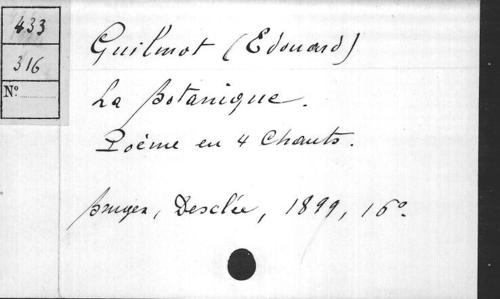 433
316
N°
Guilmot (Edouard)
La Botanique.
Poème en 4 Chants.
Bruges, Desclée, 1899, 16°.